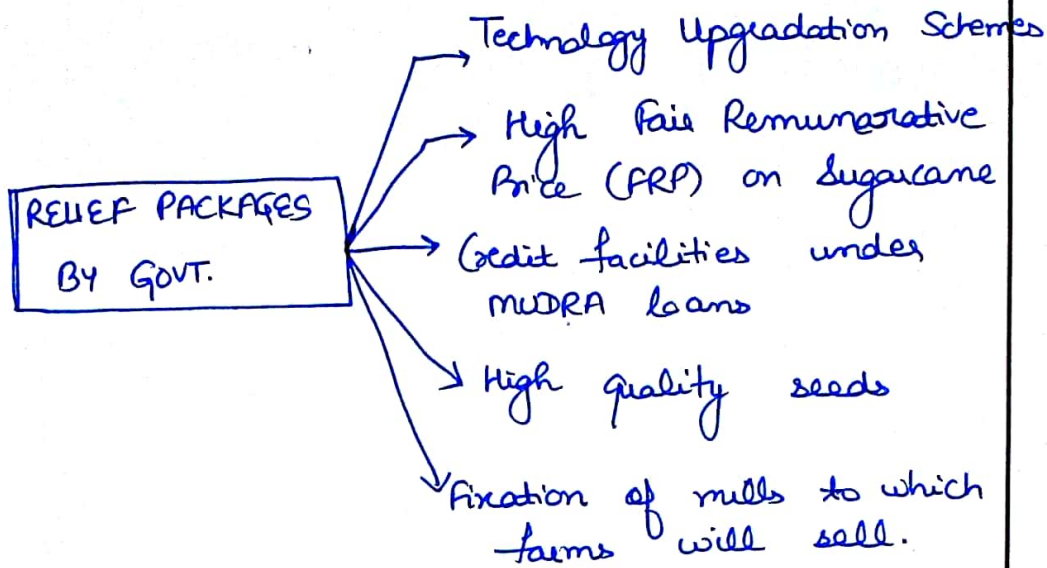 RELIEF PACKAGES
BY GOVT.
Technology Upgradation Schemes
High Fair Remunarative
Price (FRP) on Sugarcane
Credit facilities under
MUDRA loans
High quality seeds
Fixation of mills to which
farms will sell.